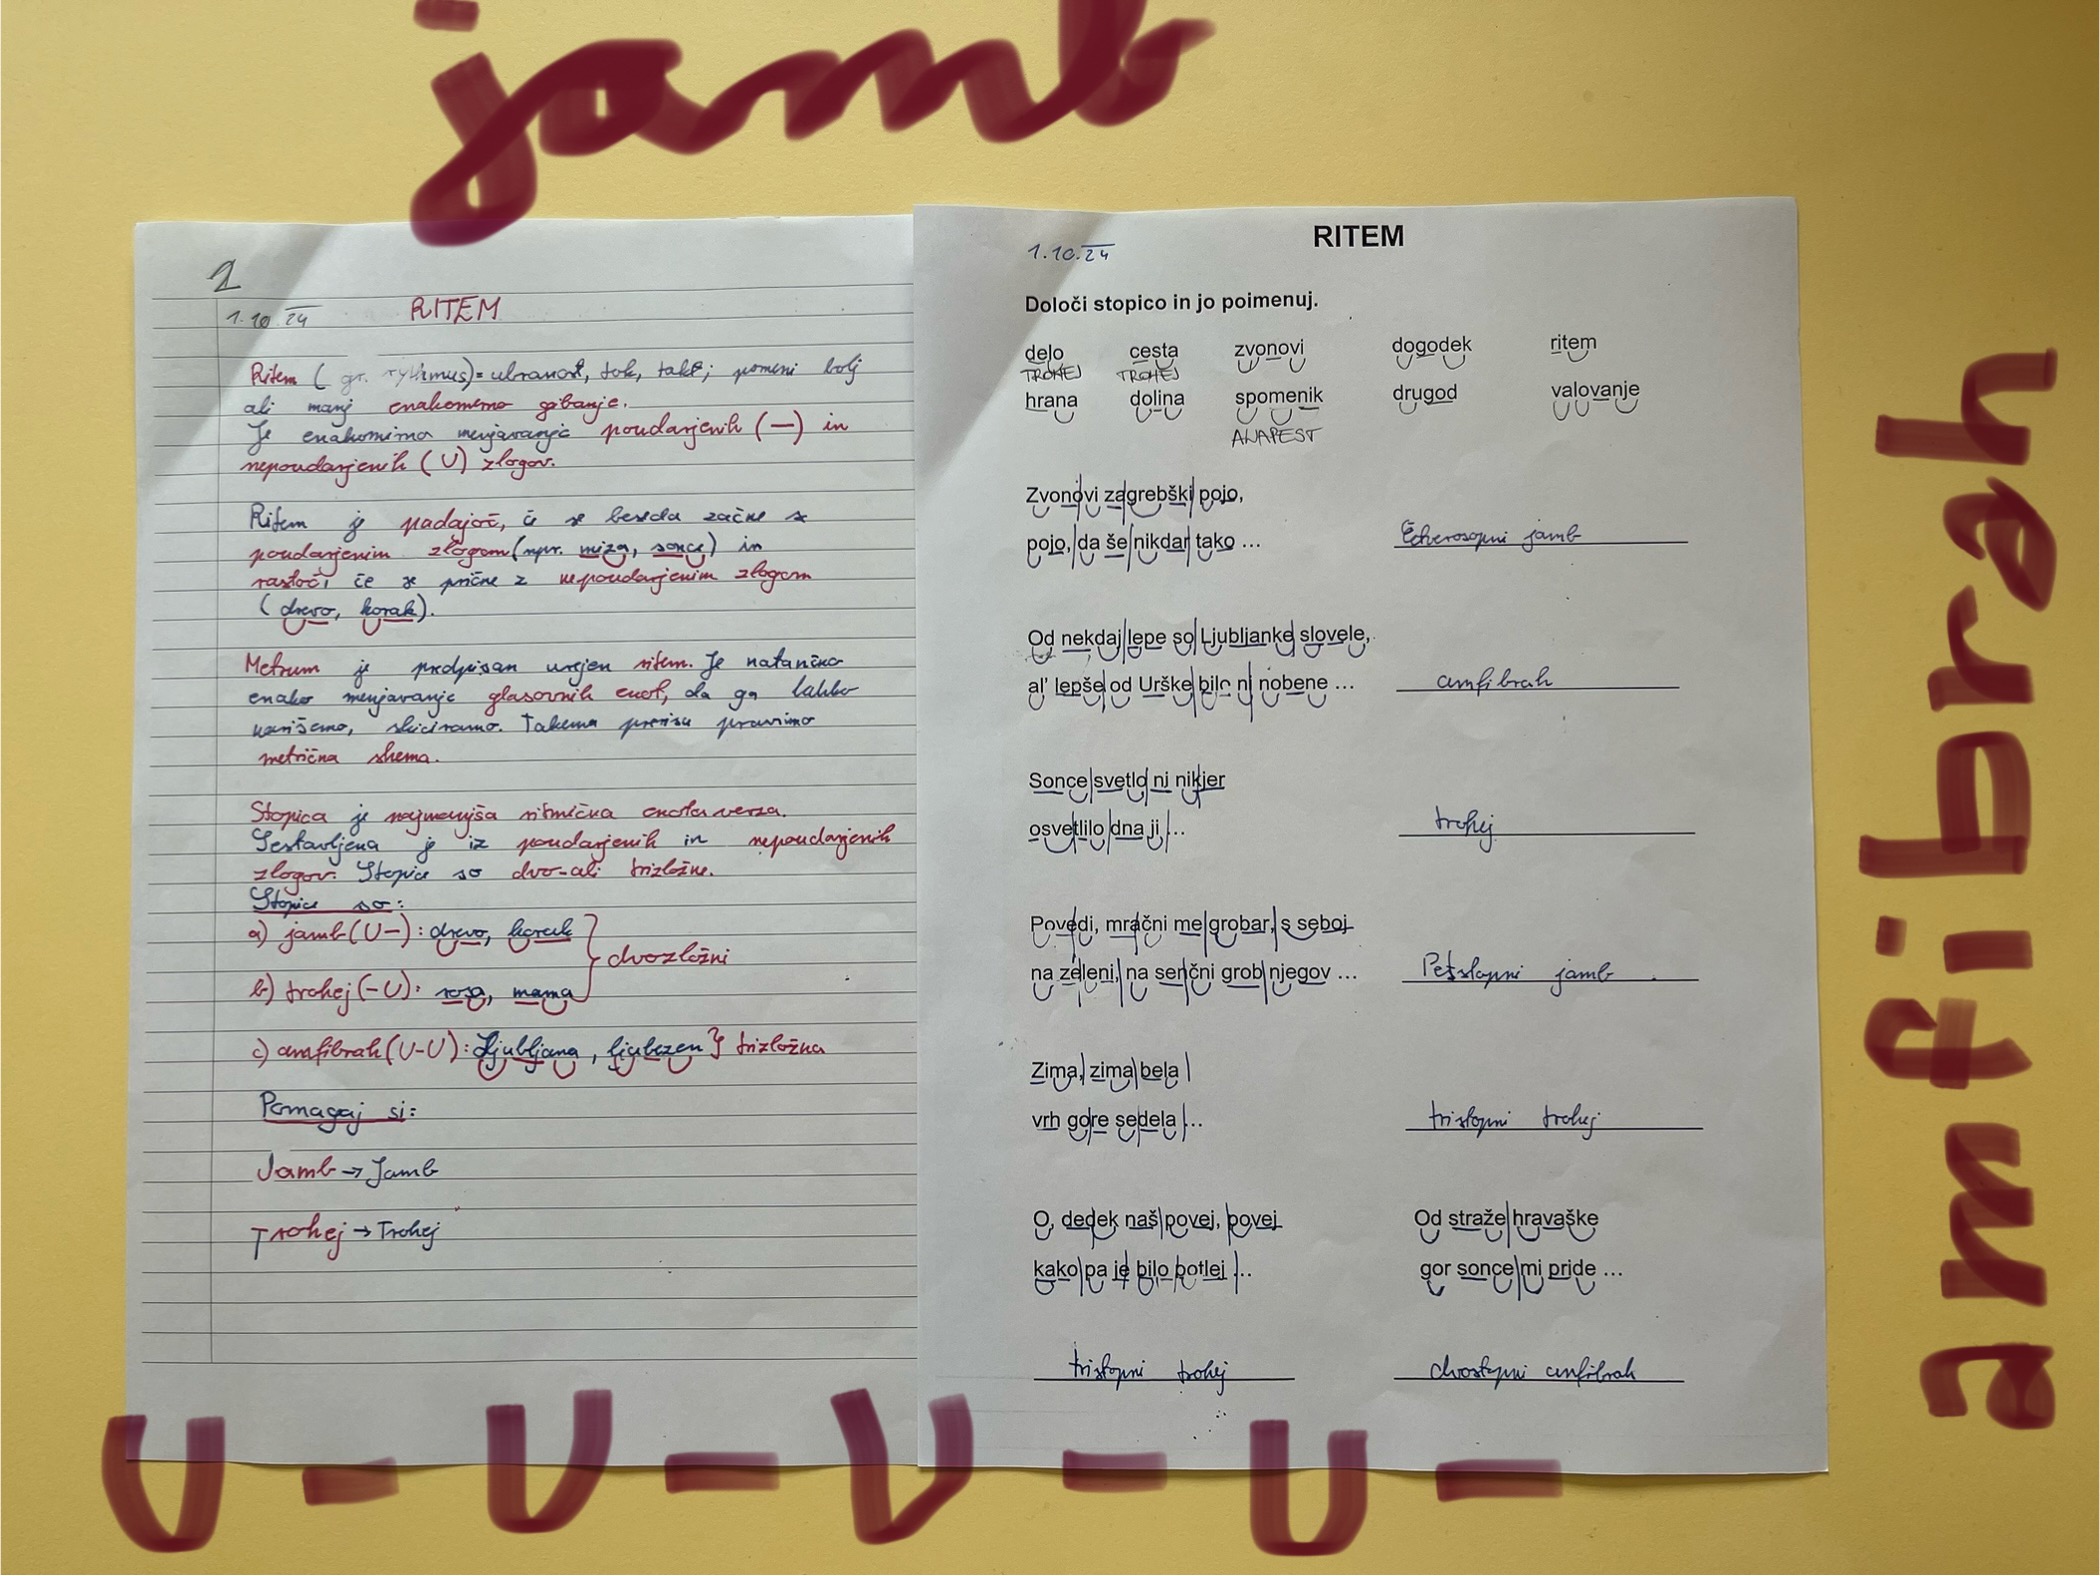 jamb
1
1.10.24 RITEM
Ritem (gr. rythmus) = ubranost, tok, takt; pomeni bolj
ali manj enakomerno gibanje.
Je enakomirno menjavanje poudarjenih (—) in
nepoudarjenih (U) zlogov.
Ritem je padajoč, če se beseda začne s
poudarjenim zlogom (npr. miza, sonce) in
rastoči če se prične z nepoudarjenim zlogom
(drevo, korak).
Metrum je predpisan urejen ritem. Je natančno
enako menjavanje glasovnih enot, da ga lahko
narišemo, skiciramo. Takemu prerisu pravimo
metrična shema.
Stopica je najmanjša ritmična enota verza.
Sestavljena je iz poudarjenih in nepoudarjenih
zlogov. Stopice so dvo-ali trizložne.
Stopice so:
a) jamb (U-): drevo, korak
b) trohej (-U): rosa, mama
} dvozložni
c) amfibrah (U-U): Ljubljana, ljubezen } trizložna
Pomagaj si:
Jamb → Jamb
Trohej → Trohej
1.10.24
RITEM
Določi stopico in jo poimenuj.
delo cesta zvonovi dogodek ritem
TROHEJ TROHEJ
hrana dolina spomenik drugod valovanje
ANAPEST
Zvonovi zagrebški pojo,
pojo, da še nikdar tako ... Čtverostopni jamb
Od nekdaj lepe so Ljubljanke slovele,
al' lepše od Urške bilo ni nobene ... amfibrah
Sonce svetlo ni nikjer
osvetlilo dna ji, ... trohej
Povedi, mračni me grobar, s seboj
na zeleni, na senčni grob njegov ... Petstopni jamb
Zima, zima bela
vrh gore sedela ... tristopni trohej
O, dedek naš povej, povej
kako pa je bilo potlej ...
tristopni trohej
Od straže hravaške
gor sonce mi pride ...
dvostopni amfibrah
amfibrah
U - U - U - U -